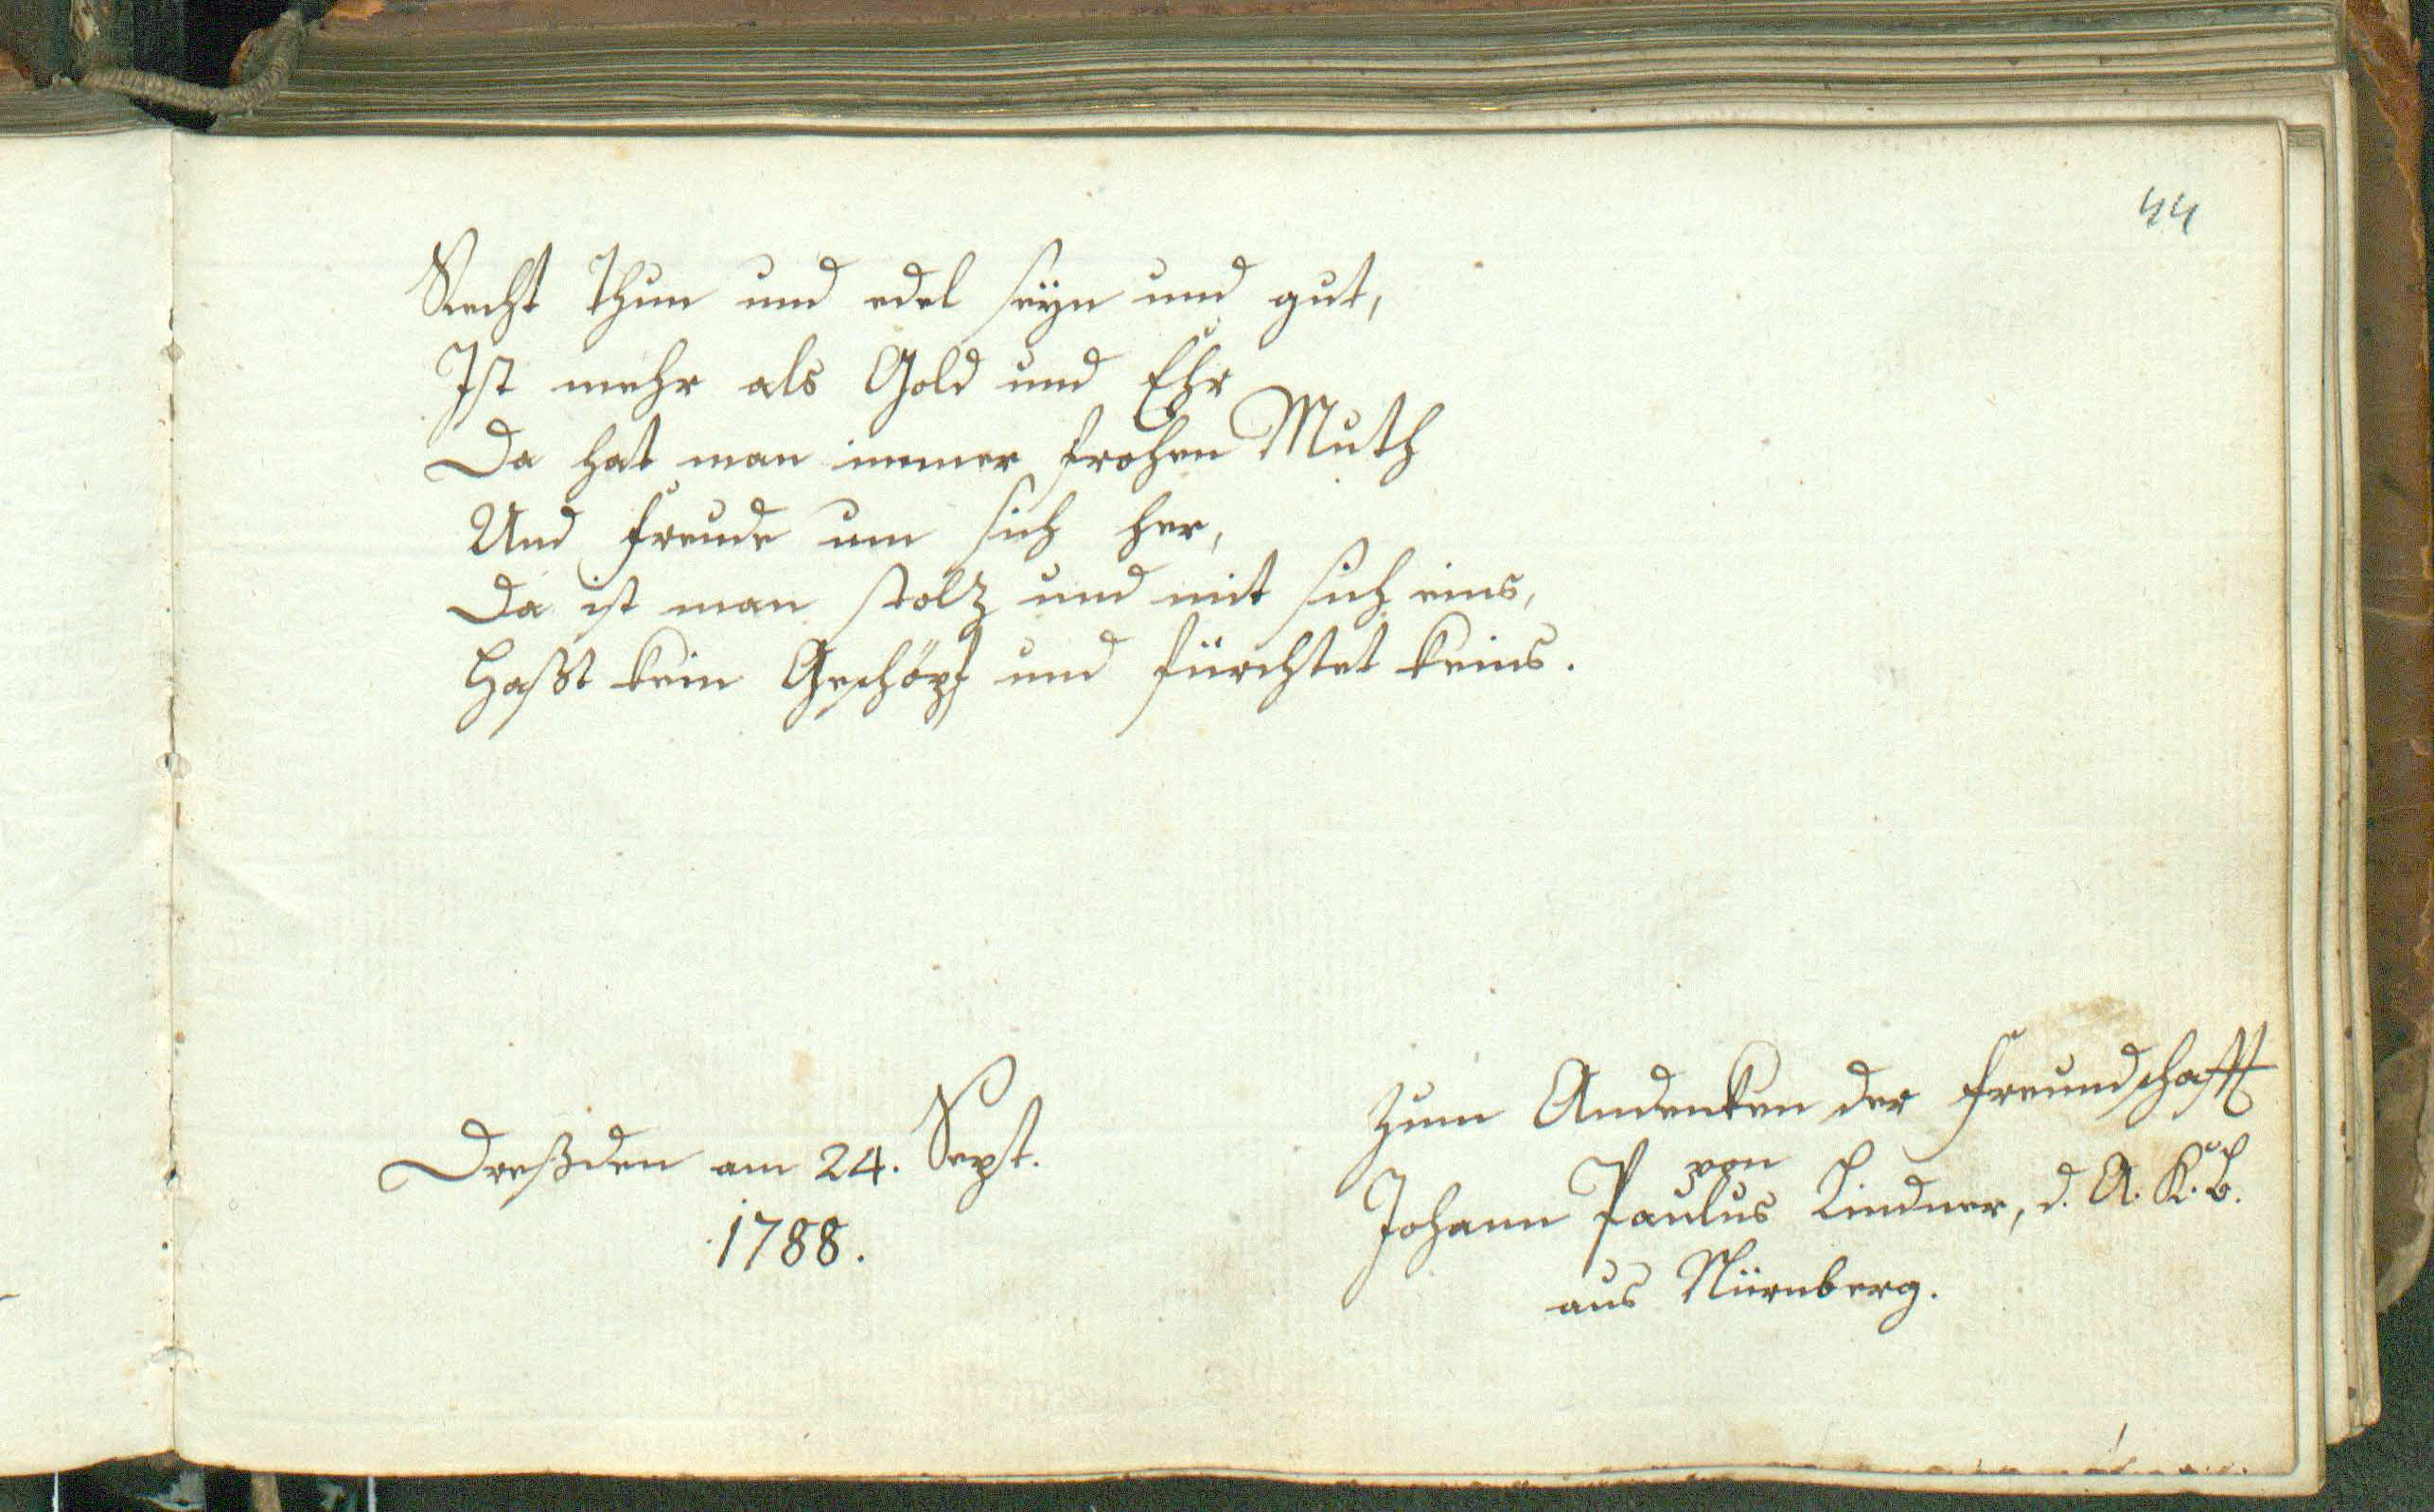 44
Recht thun und edel seÿn und gut,
Ist mehr als Gold und Ehr
Da hat man immer frohen Muth
Und Freude um sich her,
Da ist man stolz und mit sich eins,
Haßt kein Geschöpf und fürchtet keins.
Dreßden am 24. Sept.
1788.
Zum Andenken der Freundschafft
von
Johann Paulus Lindner, d. A. K. B.
aus Nürnberg.